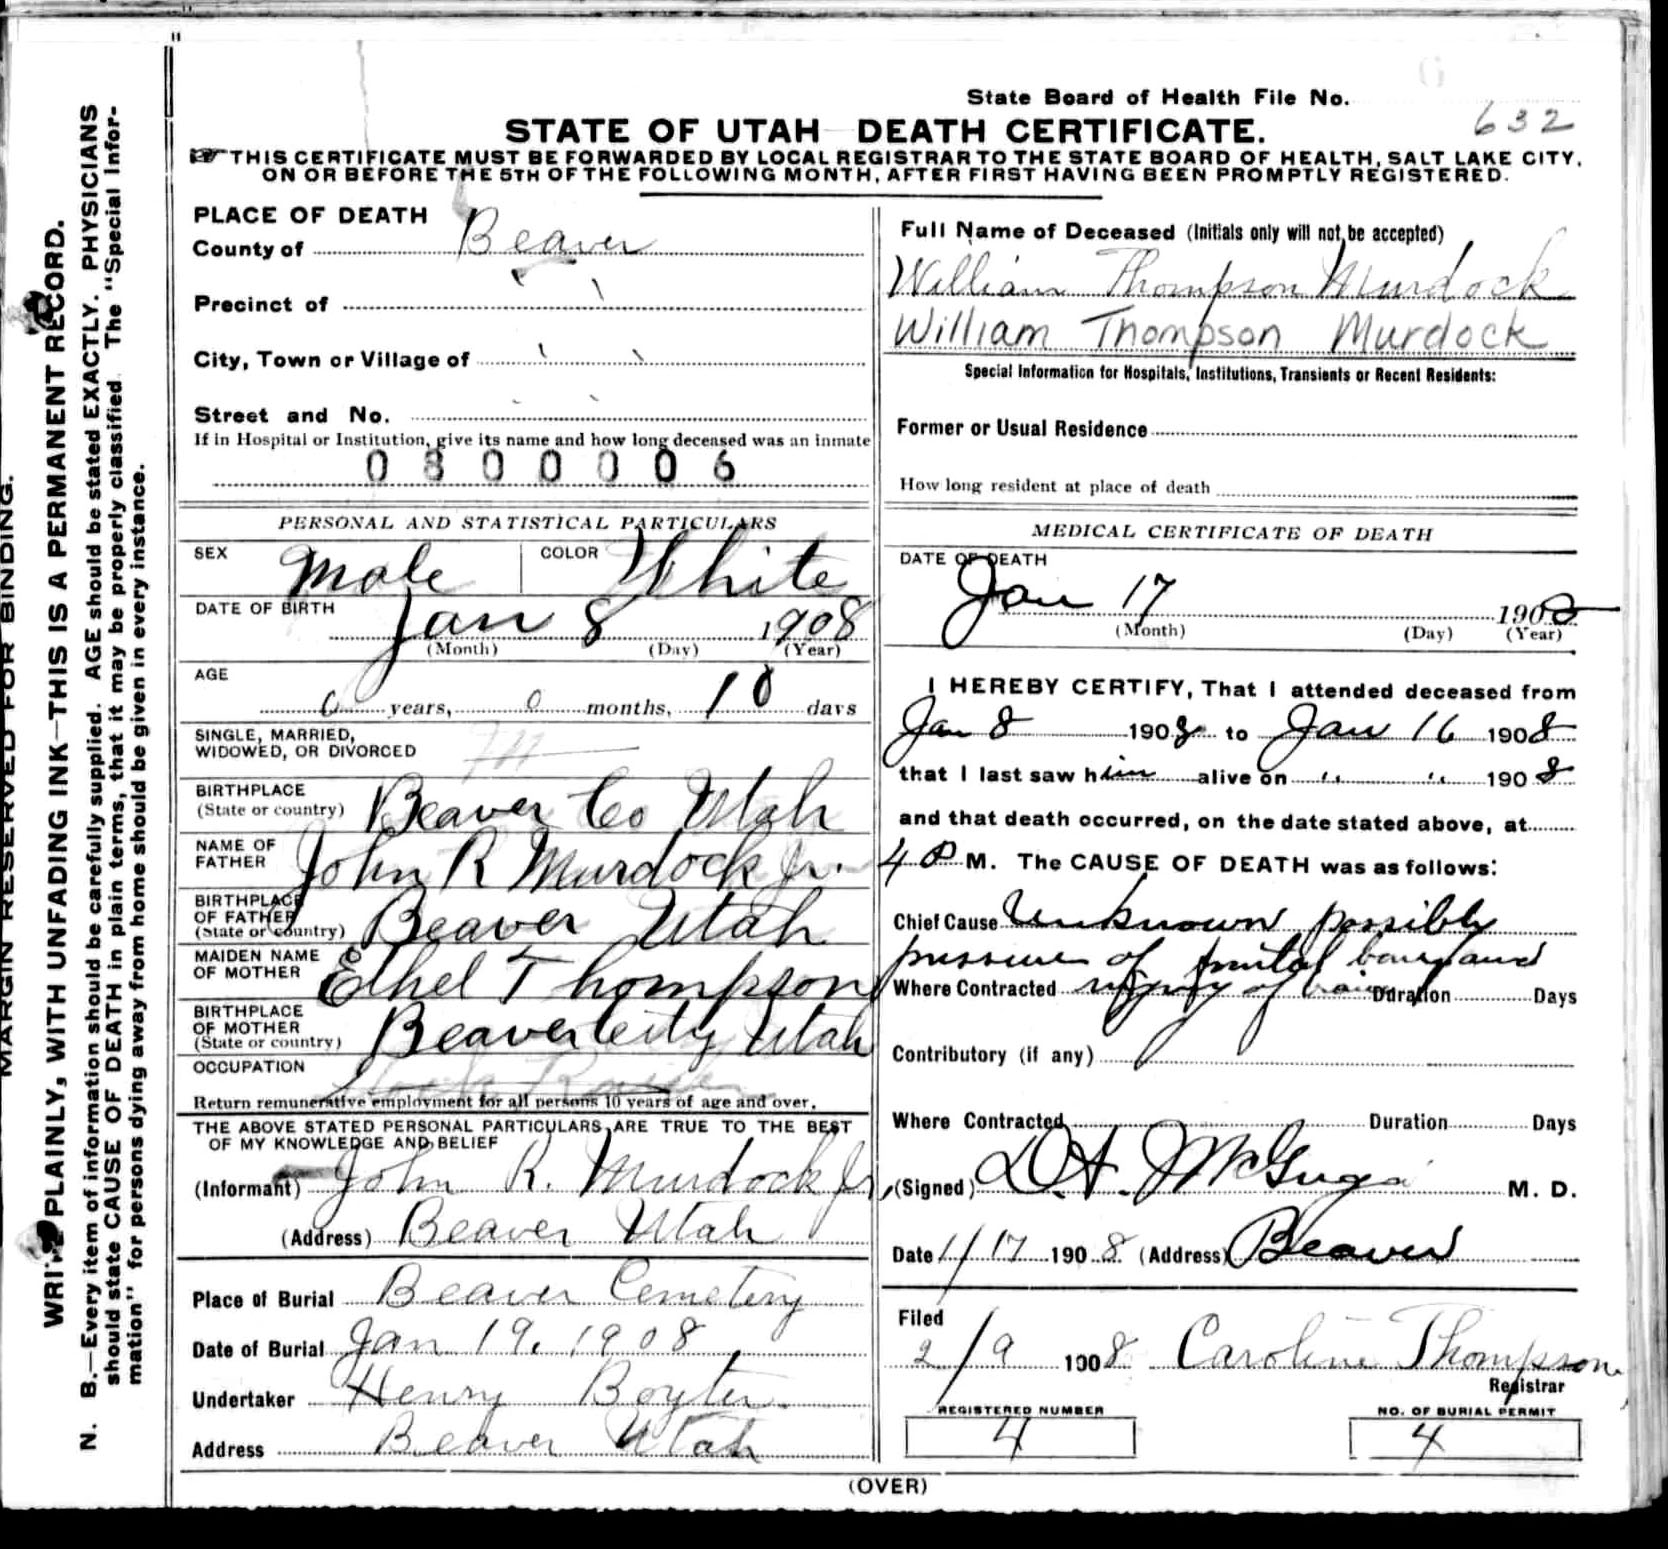 State Board of Health File No.
632
STATE OF UTAH DEATH CERTIFICATE.
THIS CERTIFICATE MUST BE FORWARDED BY LOCAL REGISTRAR TO THE STATE BOARD OF HEALTH, SALT LAKE CITY,
ON OR BEFORE THE 5TH OF THE FOLLOWING MONTH, AFTER FIRST HAVING BEEN PROMPTLY REGISTERED.
MARGIN RESERVED FOR BINDING.
WRITE PLAINLY, WITH UNFADING INK—THIS IS A PERMANENT RECORD.
N. B.—Every item of information should be carefully supplied. AGE should be stated EXACTLY. PHYSICIANS
should state CAUSE OF DEATH in plain terms, that it may be properly classified. The "Special Infor-
mation" for persons dying away from home should be given in every instance.
PLACE OF DEATH
County of Beaver
Precinct of " "
City, Town or Village of " "
Street and No.
If in Hospital or Institution, give its name and how long deceased was an inmate
0 3 0 0 0 0 6
PERSONAL AND STATISTICAL PARTICULARS
SEX Male COLOR White
DATE OF BIRTH Jan 8 1908
(Month) (Day) (Year)
AGE
0 years, 0 months, 10 days
SINGLE, MARRIED,
WIDOWED, OR DIVORCED
BIRTHPLACE
(State or country) Beaver Co Utah
NAME OF
FATHER John R Murdock Jr.
BIRTHPLACE
OF FATHER
(State or country) Beaver Utah
MAIDEN NAME
OF MOTHER Ethel Thompson
BIRTHPLACE
OF MOTHER
(State or country) Beaver City Utah
OCCUPATION
Return remunerative employment for all persons 10 years of age and over.
THE ABOVE STATED PERSONAL PARTICULARS ARE TRUE TO THE BEST
OF MY KNOWLEDGE AND BELIEF
(Informant) John R. Murdock Jr.
(Address) Beaver Utah
Place of Burial Beaver Cemetery
Date of Burial Jan 19, 1908
Undertaker Henry Boyter
Address Beaver Utah
Full Name of Deceased (Initials only will not be accepted)
William Thompson Murdock
William Thompson Murdock
Special Information for Hospitals, Institutions, Transients or Recent Residents:
Former or Usual Residence
How long resident at place of death
MEDICAL CERTIFICATE OF DEATH
DATE OF DEATH
Jan 17 1908
(Month) (Day) (Year)
I HEREBY CERTIFY, That I attended deceased from
Jan 8 1908 to Jan 16 1908
that I last saw him alive on " " 1908
and that death occurred, on the date stated above, at
4 P M. The CAUSE OF DEATH was as follows:
Chief Cause Unknown possibly
pressure of bone and
Where Contracted injury of brain Duration Days
Contributory (if any)
Where Contracted Duration Days
(Signed) M. D.
Date 1/17 1908 (Address) Beaver
Filed
2/9 1908 Caroline Thompson
Registrar
REGISTERED NUMBER
4
NO. OF BURIAL PERMIT
4
(OVER)